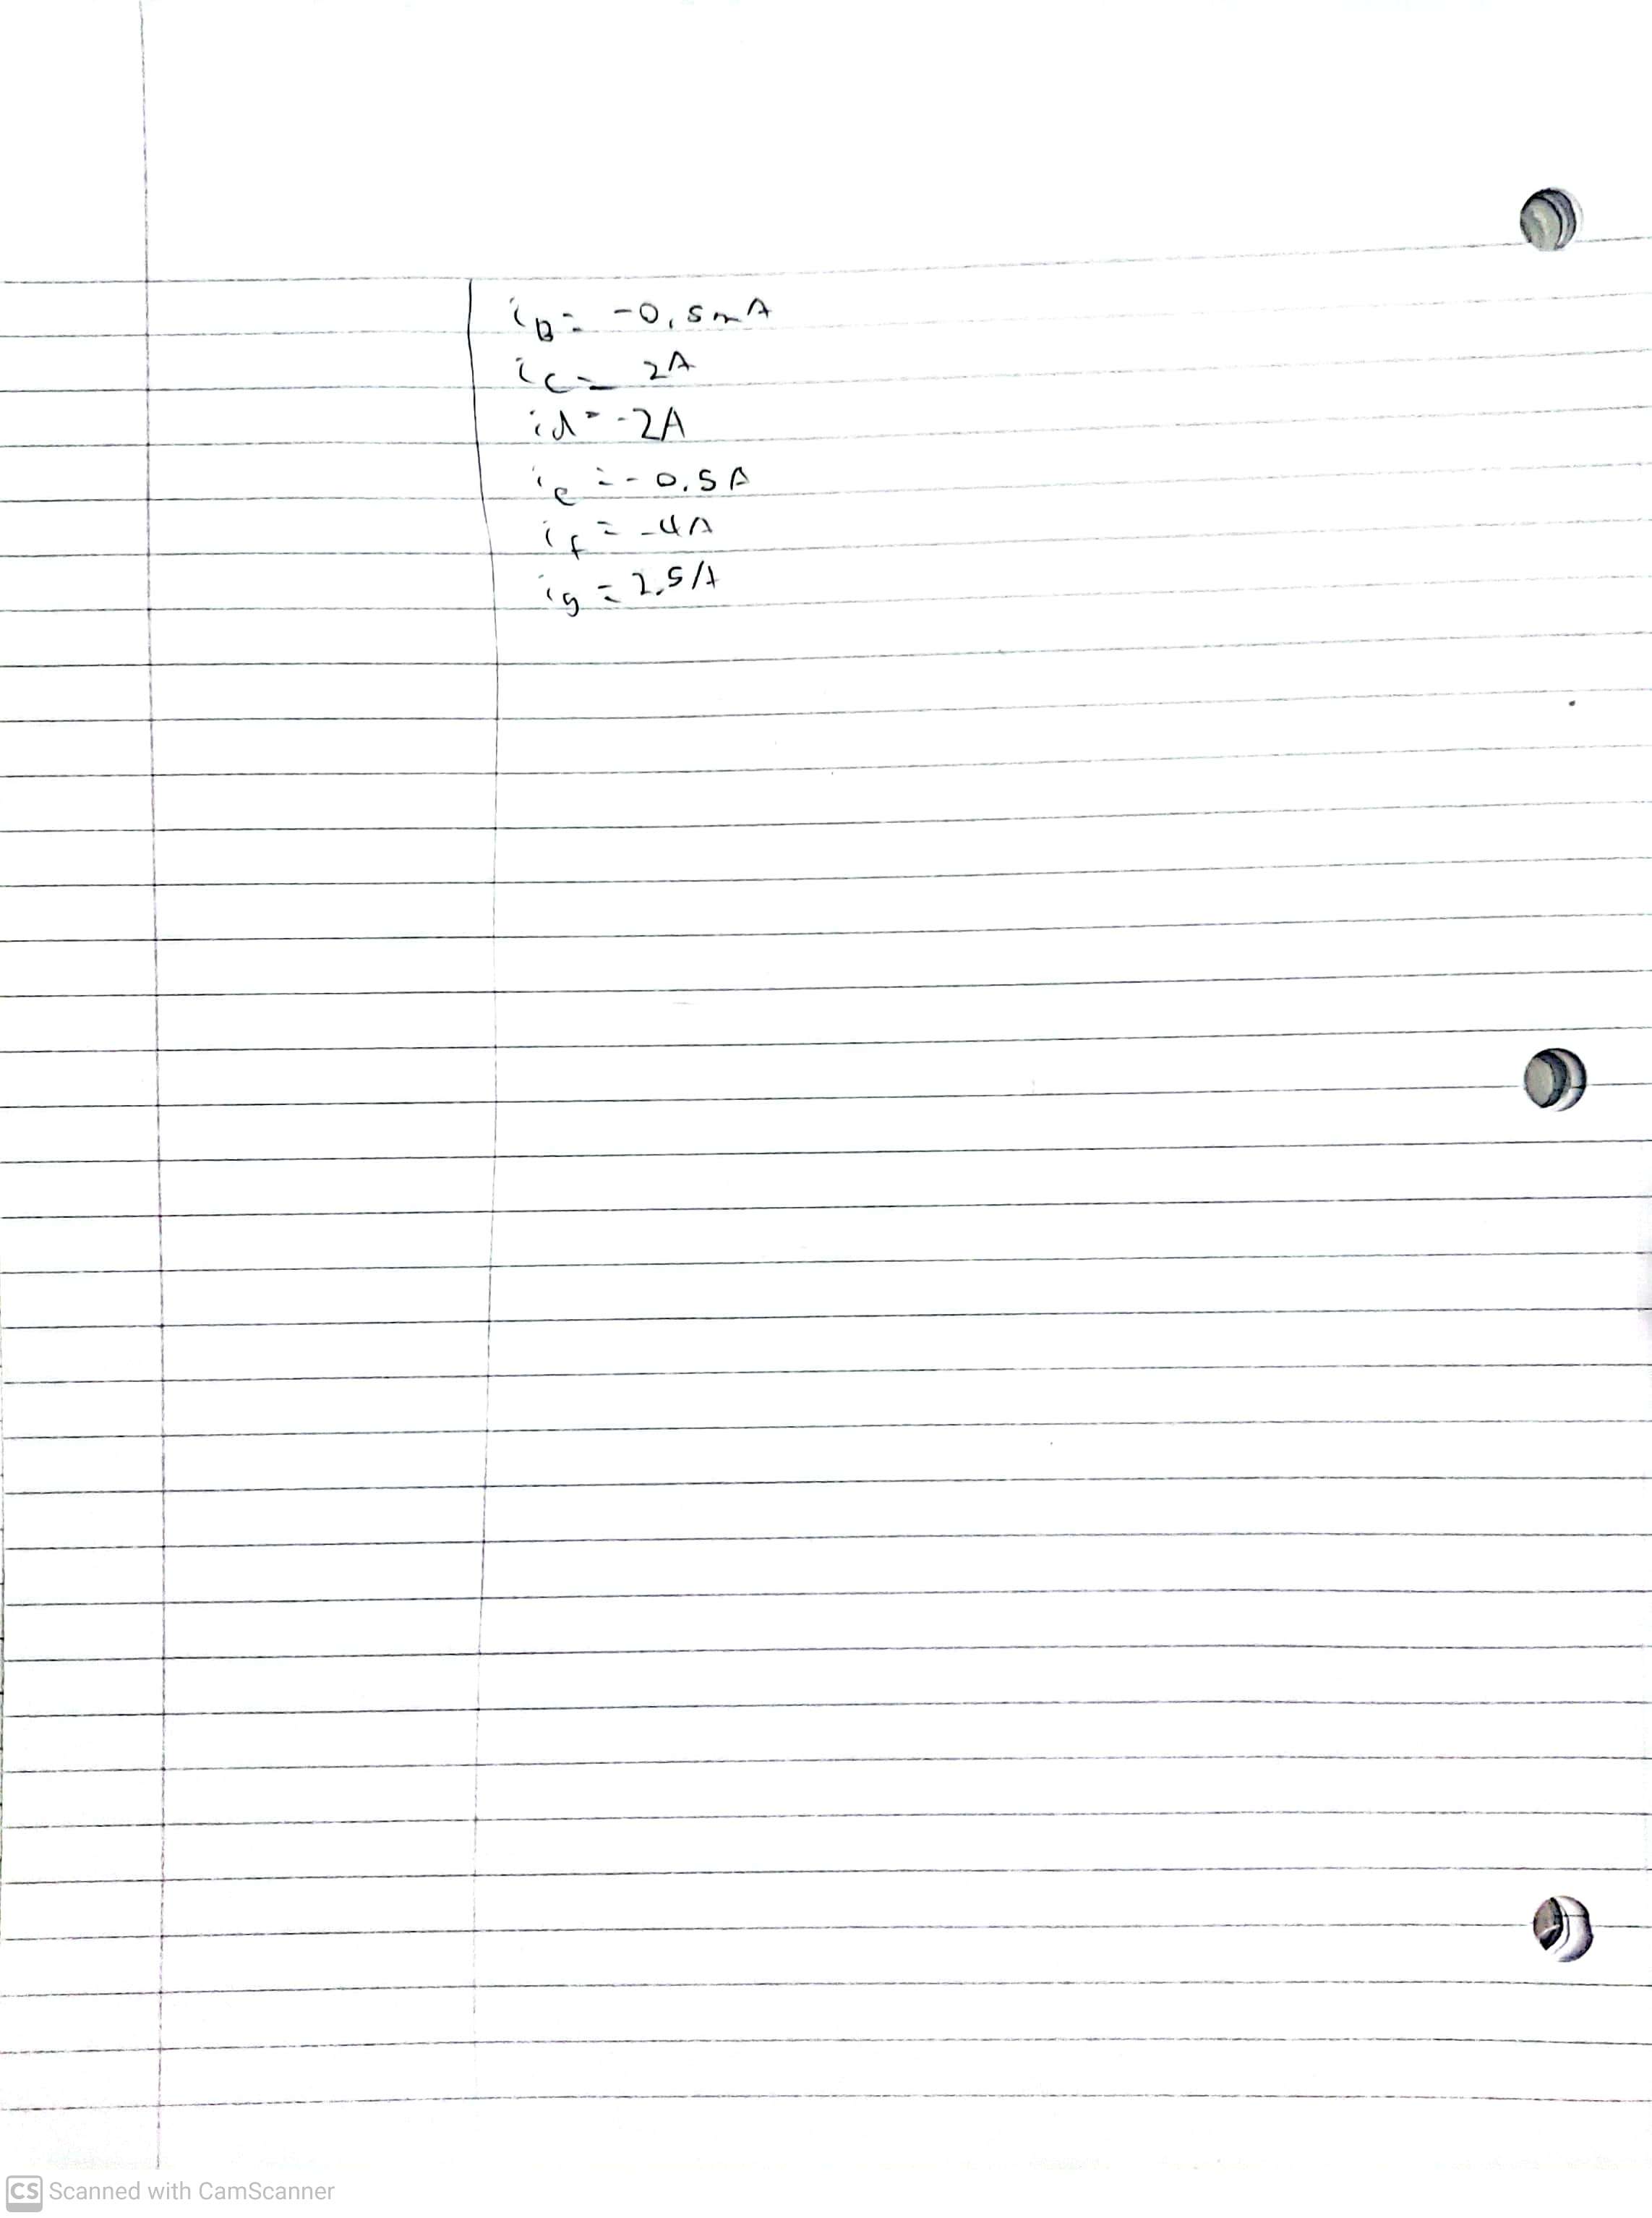 i_B = -0,5mA
i_c = 2A
i_d = -2A
i_e = -0.5A
i_f = -4A
i_g = 2.5A
CS Scanned with CamScanner